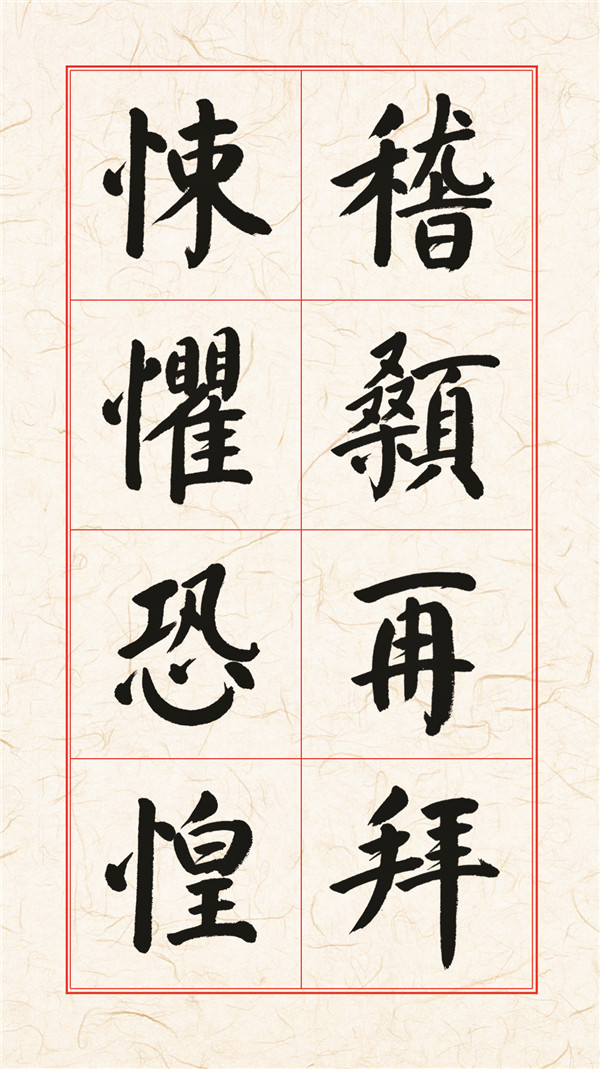 稽顙再拜
悚懼恐惶